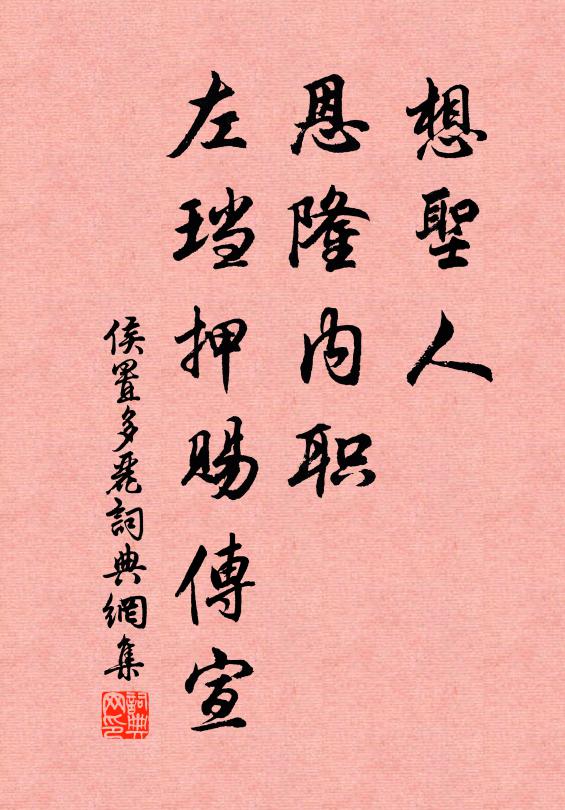 想聖人
恩隆内职
左珰押赐傳宣
侯置多麗詞典網集
詞典网印